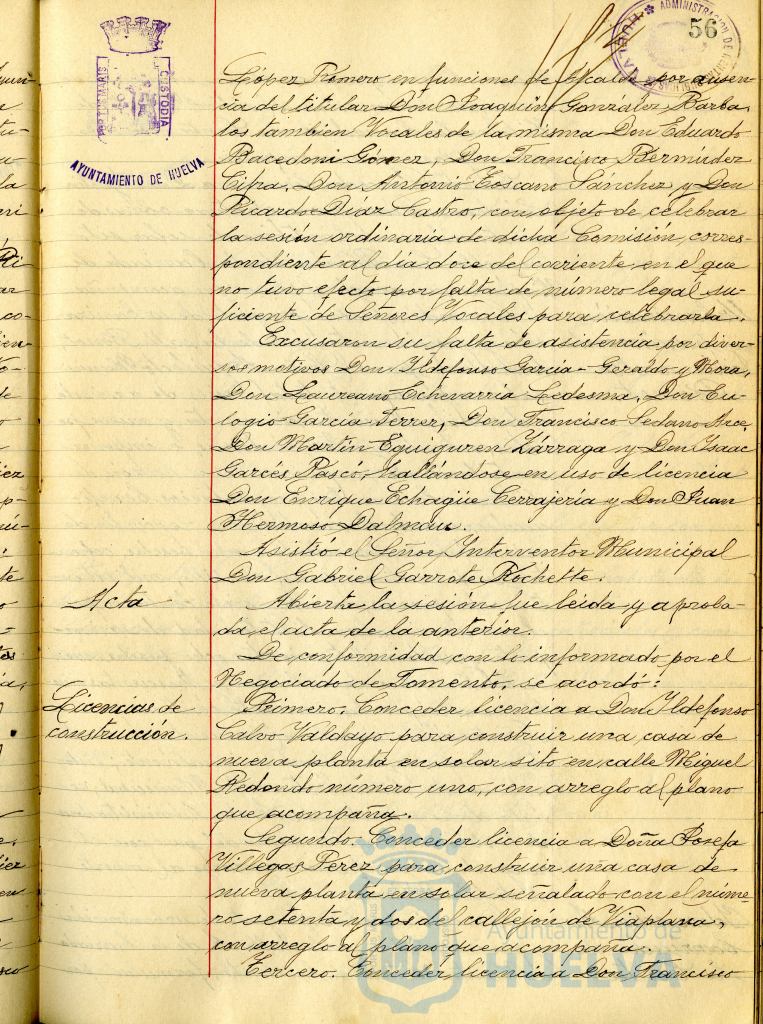 56
ADMINISTRACION DE
HUELVA
PORTUS MARIS
CUSTODIA
AYUNTAMIENTO DE HUELVA
López Romero en funciones de Alcalde por ausen-
cia del titular Don Joaquin Gonzalez Barba,
los tambien Vocales de la misma Don Eduardo
Bacedoni Gómez, Don Francisco Bermúdez
Cifra, Don Antonio Toscano Sánchez y Don
Ricardo Díaz Castro, con objeto de celebrar
la sesión ordinaria de dicha Comisión, corres-
pondiente al día doce del corriente en el que
no tuvo efecto por falta de número legal su-
ficiente de Señores Vocales para celebrarla.
Excusaron su falta de asistencia por diver-
sos motivos Don Ildefonso García-Geraldo y Mora,
Don Laureano Echevarria Ledesma, Don Eu-
logio García Ferrer, Don Francisco Sedano Arce,
Don Martín Eguiguren Zárraga y Don Isaac
Garcés Pascó, hallándose en uso de licencia
Don Enrique Echagüe Cerrajería y Don Juan
Hermoso Dalmau.
Asistió el Señor Interventor Municipal
Don Gabriel Garrote Rochette.
Acta
Abierta la sesión fue leida y aproba-
da el acta de la anterior.
De conformidad con lo informado por el
Negociado de Fomento, se acordó:
Licencias de
construcción.
Primero. Conceder licencia a Don Ildefonso
Calvo Valdayo para construir una casa de
nueva planta en solar sito en calle Miguel
Redondo número uno, con arreglo al plano
que acompaña.
Segundo. Conceder licencia a Doña Josefa
Villegas Pérez para construir una casa de
nueva planta en solar señalado con el núme-
ro setenta y dos del callejón de Viaplana,
con arreglo al plano que acompaña.
Tercero. Conceder licencia a Don Francisco
Ayuntamiento de
HUELVA